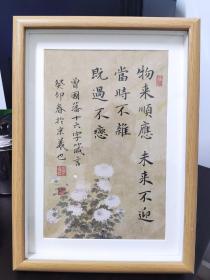 物来順應 未来不迎
當時不雜
既過不戀
曾國藩十六字箴言
癸卯春於京義也